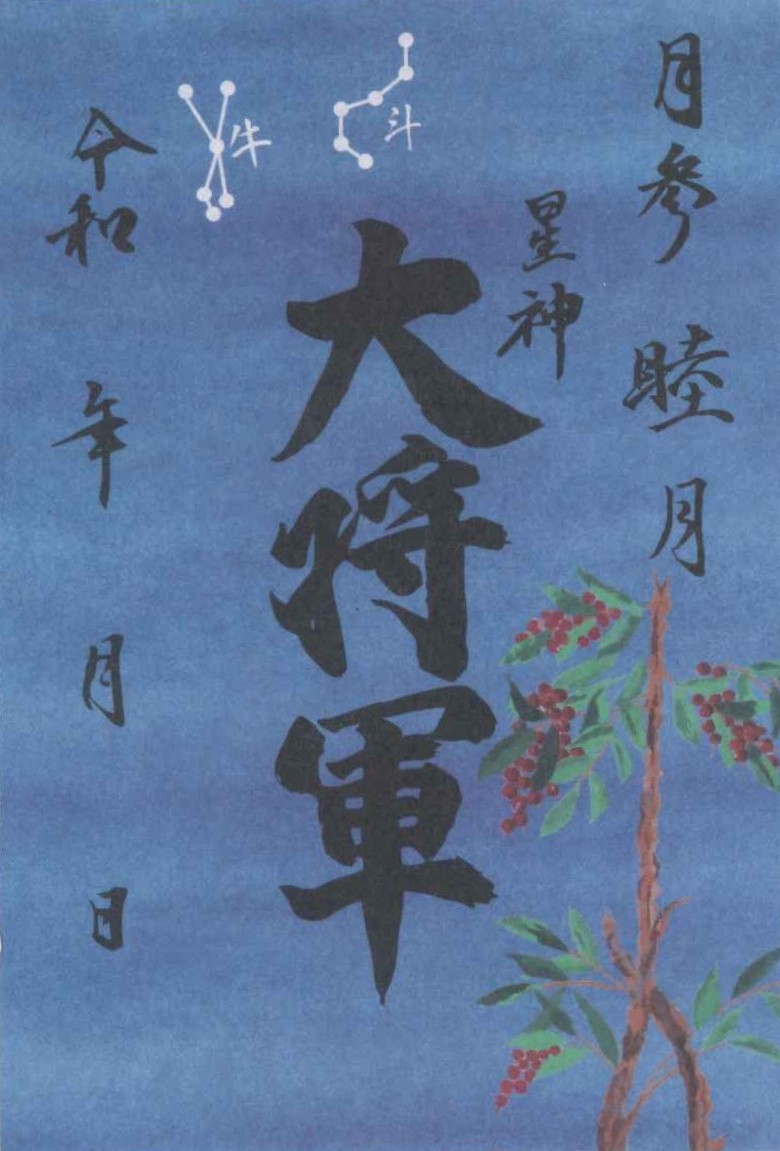 月参 睦月
星神
大将軍
斗
牛
令和 年 月 日